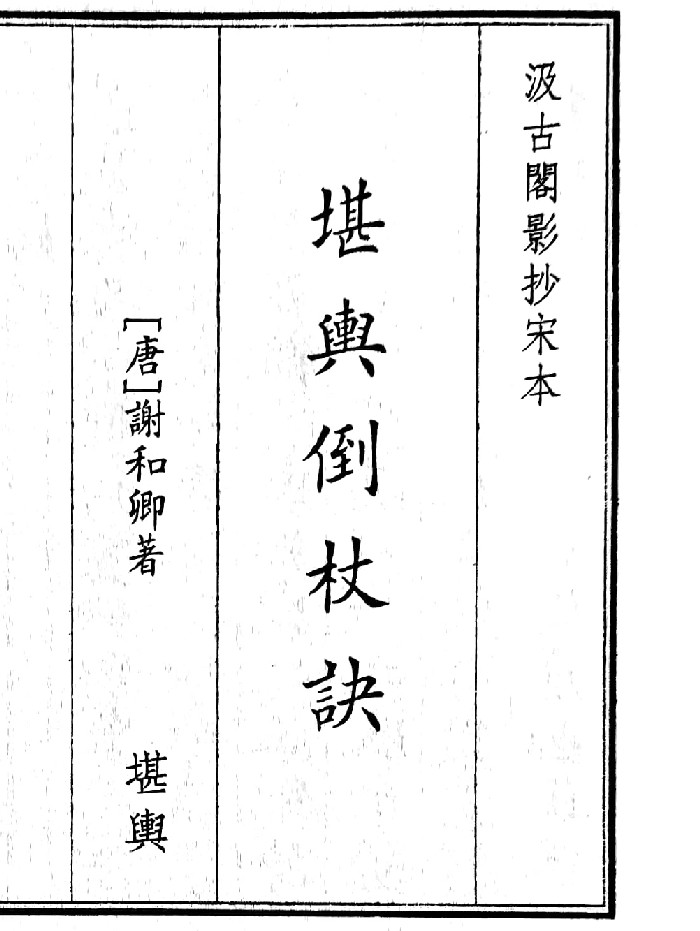 汲古閣影抄宋本
堪輿倒杖訣
[唐]謝和卿著
堪輿